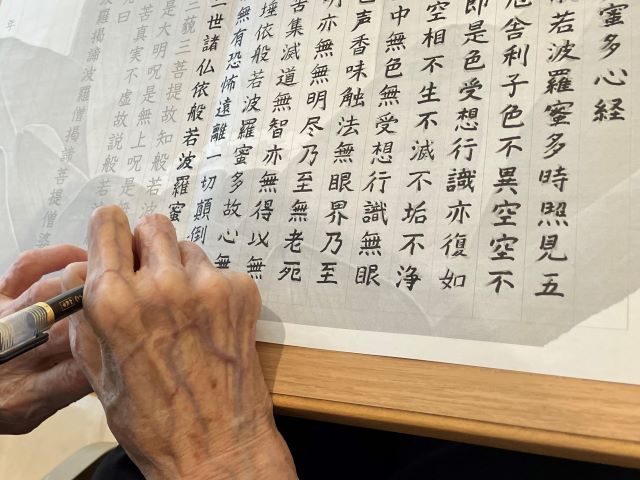 蜜多心経
般若波羅蜜多時照見五
厄舎利子色不異空空不
即是色受想行識亦復如
空相不生不滅不垢不浄
中無色無受想行識無眼
色声香味触法無眼界乃至
明亦無無明尽乃至無老死
苦集滅道無智亦無得以無
埵依般若波羅蜜多故心無
無有恐怖遠離一切顛倒
三世諸仏依般若波羅蜜
三藐三菩提故知般若波
是大明呪是無上呪是無
苦真実不虚故説般若波
曰
波羅揭諦波羅僧揭諦菩提僧婆
年